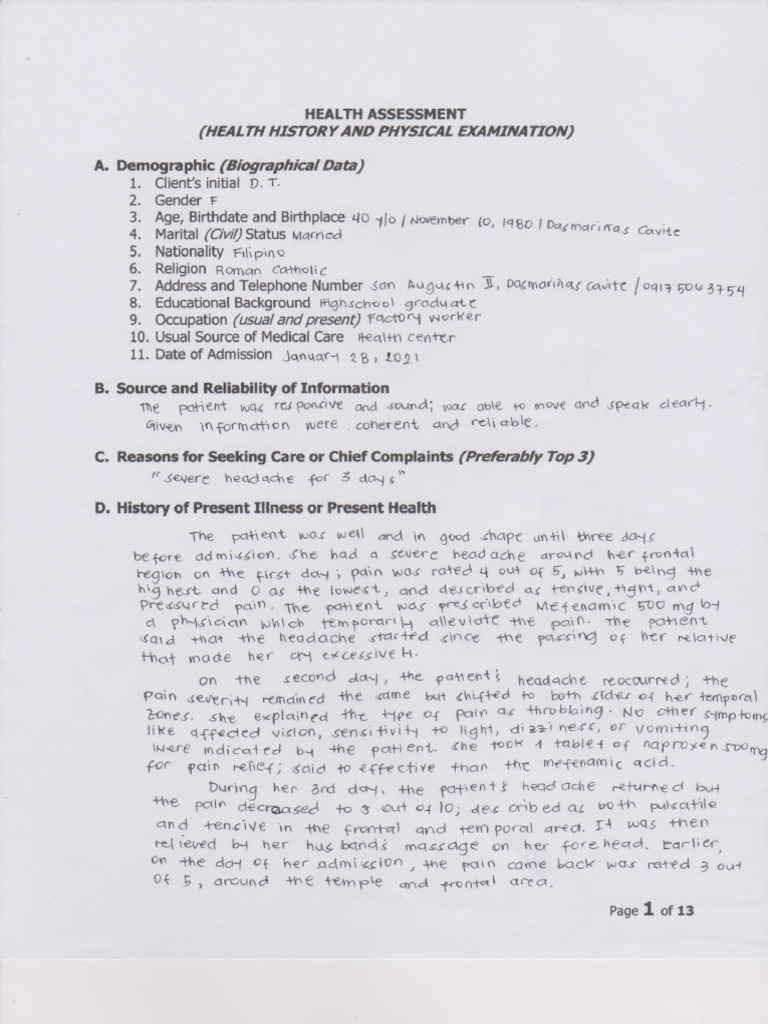 HEALTH ASSESSMENT
(HEALTH HISTORY AND PHYSICAL EXAMINATION)
A. Demographic (Biographical Data)
1. Client's initial D. T.
2. Gender F
3. Age, Birthdate and Birthplace 40 y/o / November 10, 1980 / Dasmariñas Cavite
4. Marital (Civil) Status Married
5. Nationality Filipino
6. Religion Roman Catholic
7. Address and Telephone Number San Augustin II, Dasmariñas Cavite / 0917 506 3754
8. Educational Background Highschool graduate
9. Occupation (usual and present) Factory Worker
10. Usual Source of Medical Care Health Center
11. Date of Admission January 28, 2021
B. Source and Reliability of Information
The patient was responsive and sound; was able to move and speak clearly.
Given information were coherent and reliable.
C. Reasons for Seeking Care or Chief Complaints (Preferably Top 3)
"severe headache for 3 days"
D. History of Present Illness or Present Health
The patient was well and in good shape until three days
before admission. She had a severe headache around her frontal
region on the first day; pain was rated 4 out of 5, with 5 being the
highest and 0 as the lowest, and described as tensive, tight, and
pressured pain. The patient was prescribed Mefenamic 500 mg by
a physician which temporarily alleviate the pain. The patient
said that the headache started since the passing of her relative
that made her cry excessively.
On the second day, the patient's headache reocurred; the
pain severity remained the same but shifted to both sides of her temporal
zones. She explained the type of pain as throbbing. No other symptoms
like affected vision, sensitivity to light, dizziness, or vomiting
were indicated by the patient. She took 1 tablet of naproxen 500mg
for pain relief; said to effective than the mefenamic acid.
During her 3rd day, the patient's headache returned but
the pain decreased to 3 out of 10; described as both pulsatile
and tensive in the frontal and temporal area. It was then
relieved by her husband's massage on her forehead. Earlier,
on the day of her admission, the pain came back was rated 3 out
of 5, around the temple and frontal area.
Page 1 of 13